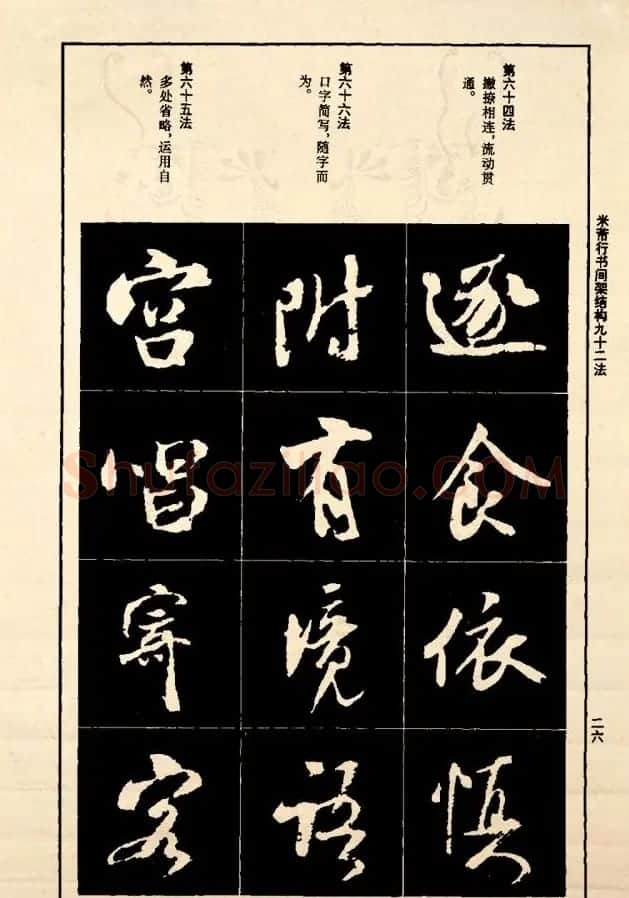 米芾行书间架结构九十二法
二六
第六十四法
撇捺相连，流动贯
通。
第六十六法
口字简写，随字而
为。
第六十五法
多处省略，运用自
然。
遂食依慎
附有境語
宫唱寄客
Shufaziliao.COM